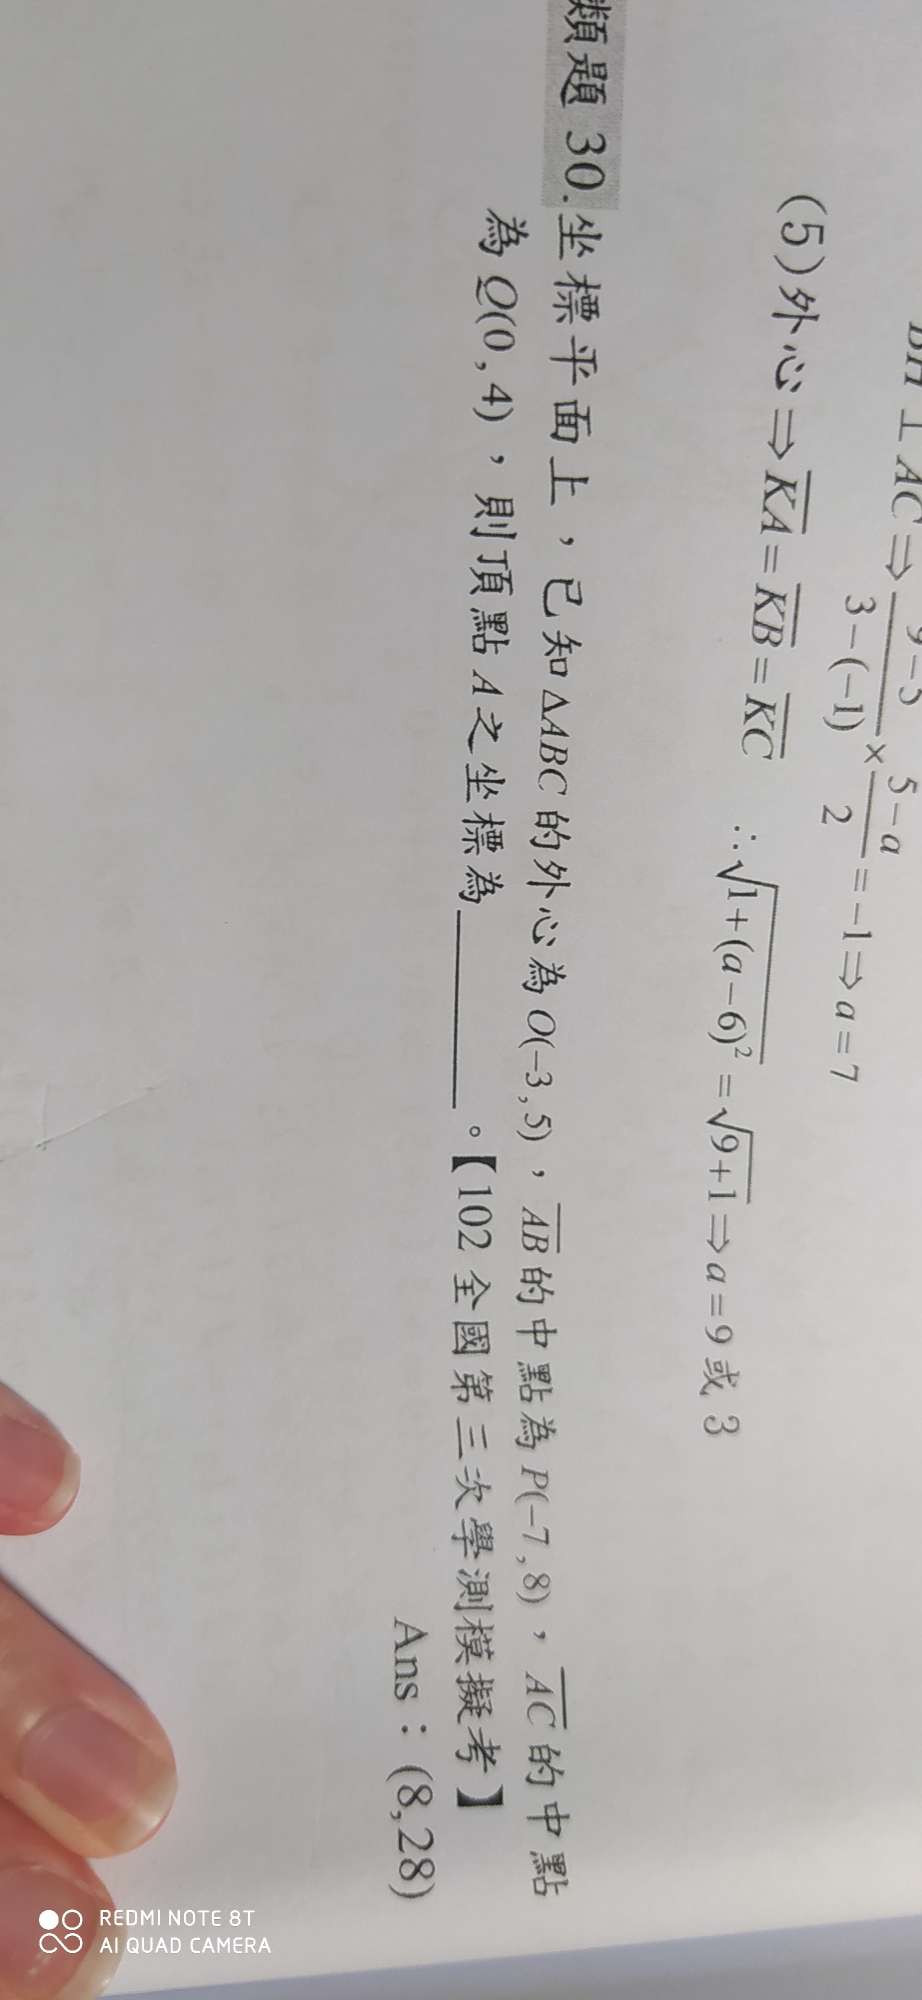 BH⊥AC⇒(9-5)/(3-(-1))×(5-a)/2=-1⇒a=7
(5)外心⇒KA=KB=KC ∴√(1+(a-6)²)=√(9+1)⇒a=9或3
類題 30.坐標平面上，已知ΔABC的外心為O(-3,5)，AB的中點為P(-7,8)，AC的中點
為Q(0,4)，則頂點A之坐標為______。【102全國第三次學測模擬考】
Ans：(8,28)
REDMI NOTE 8T
AI QUAD CAMERA